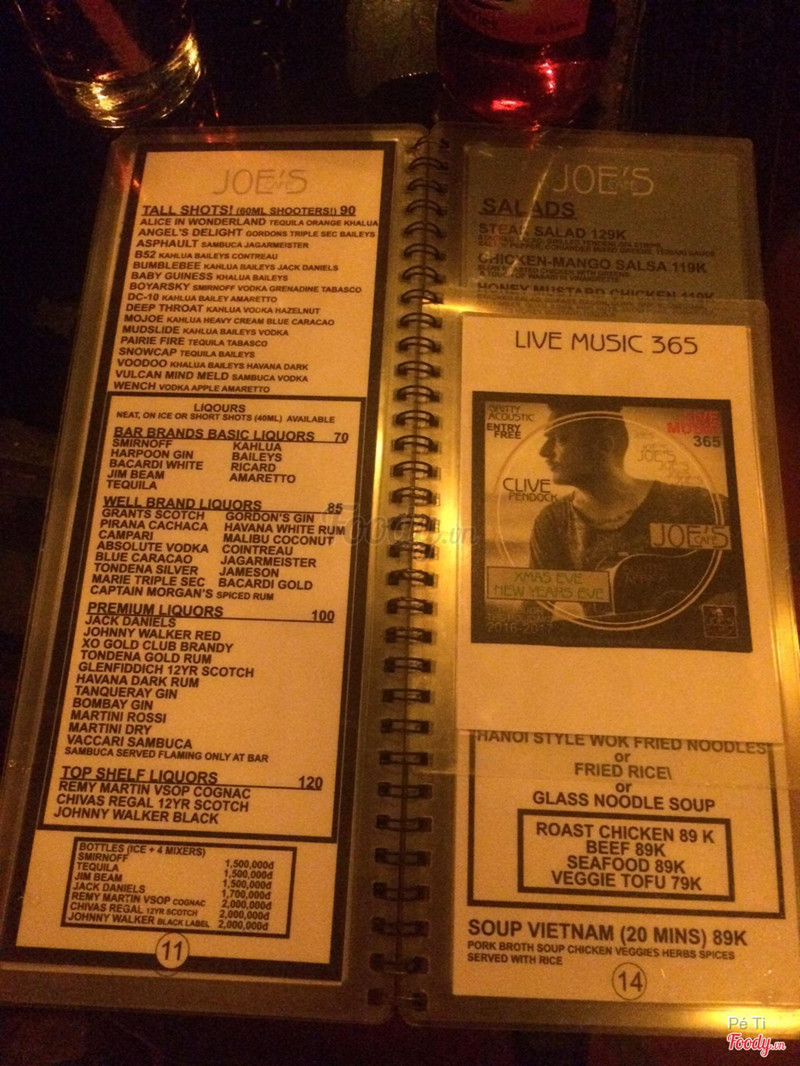 JOE'S
CAFE
TALL SHOTS! (60ML SHOOTERS!) 90
ALICE IN WONDERLAND TEQUILA ORANGE KHALUA
ANGEL'S DELIGHT GORDONS TRIPLE SEC BAILEYS
ASPHAULT SAMBUCA JAGARMEISTER
B52 KAHLUA BAILEYS CONTREAU
BUMBLEBEE KAHLUA BAILEYS JACK DANIELS
BABY GUINESS KHALUA BAILEYS
BOYARSKY SMIRNOFF VODKA GRENADINE TABASCO
DC-10 KAHLUA BAILEY AMARETTO
DEEP THROAT KAHLUA VODKA HAZELNUT
MOJOE KAHLUA HEAVY CREAM BLUE CARACAO
MUDSLIDE KAHLUA BAILEYS VODKA
PAIRIE FIRE TEQUILA TABASCO
SNOWCAP TEQUILA BAILEYS
VOODOO KHALUA BAILEYS HAVANA DARK
VULCAN MIND MELD SAMBUCA VODKA
WENCH VODKA APPLE AMARETTO
LIQOURS
NEAT, ON ICE OR SHORT SHOTS (40ML) AVAILABLE
BAR BRANDS BASIC LIQUORS 70
SMIRNOFF KAHLUA
HARPOON GIN BAILEYS
BACARDI WHITE RICARD
JIM BEAM AMARETTO
TEQUILA
WELL BRAND LIQUORS 85
GRANTS SCOTCH GORDON'S GIN
PIRANA CACHACA HAVANA WHITE RUM
CAMPARI MALIBU COCONUT
ABSOLUTE VODKA COINTREAU
BLUE CARACAO JAGARMEISTER
TONDENA SILVER JAMESON
MARIE TRIPLE SEC BACARDI GOLD
CAPTAIN MORGAN'S SPICED RUM
PREMIUM LIQUORS 100
JACK DANIELS
JOHNNY WALKER RED
XO GOLD CLUB BRANDY
TONDENA GOLD RUM
GLENFIDDICH 12YR SCOTCH
HAVANA DARK RUM
TANQUERAY GIN
BOMBAY GIN
MARTINI ROSSI
MARTINI DRY
VACCARI SAMBUCA
SAMBUCA SERVED FLAMING ONLY AT BAR
TOP SHELF LIQUORS 120
REMY MARTIN VSOP COGNAC
CHIVAS REGAL 12YR SCOTCH
JOHNNY WALKER BLACK
BOTTLES (ICE + 4 MIXERS)
SMIRNOFF 1,500,000đ
TEQUILA 1,500,000đ
JIM BEAM 1,500,000đ
JACK DANIELS 1,700,000đ
REMY MARTIN VSOP COGNAC 2,000,000đ
CHIVAS REGAL 12YR SCOTCH 2,000,000đ
JOHNNY WALKER BLACK LABEL 2,000,000đ
11
JOE'S
CAFE
SALADS
STEAK SALAD 129K
CHICKEN-MANGO SALSA 119K
HONEY MUSTARD CHICKEN 119K
LIVE MUSIC 365
ACOUSTIC
ENTRY
FREE
LIVE
MUSIC
365
CLIVE
PENDOCK
JOE'S
CAFE
XMAS EVE
NEW YEARS EVE
HANOI STYLE WOK FRIED NOODLES
or
FRIED RICE\
or
GLASS NOODLE SOUP
ROAST CHICKEN 89 K
BEEF 89K
SEAFOOD 89K
VEGGIE TOFU 79K
SOUP VIETNAM (20 MINS) 89K
PORK BROTH SOUP CHICKEN VEGGIES HERBS SPICES
SERVED WITH RICE
14
Foody.vn
Pé Ti
Foody.vn